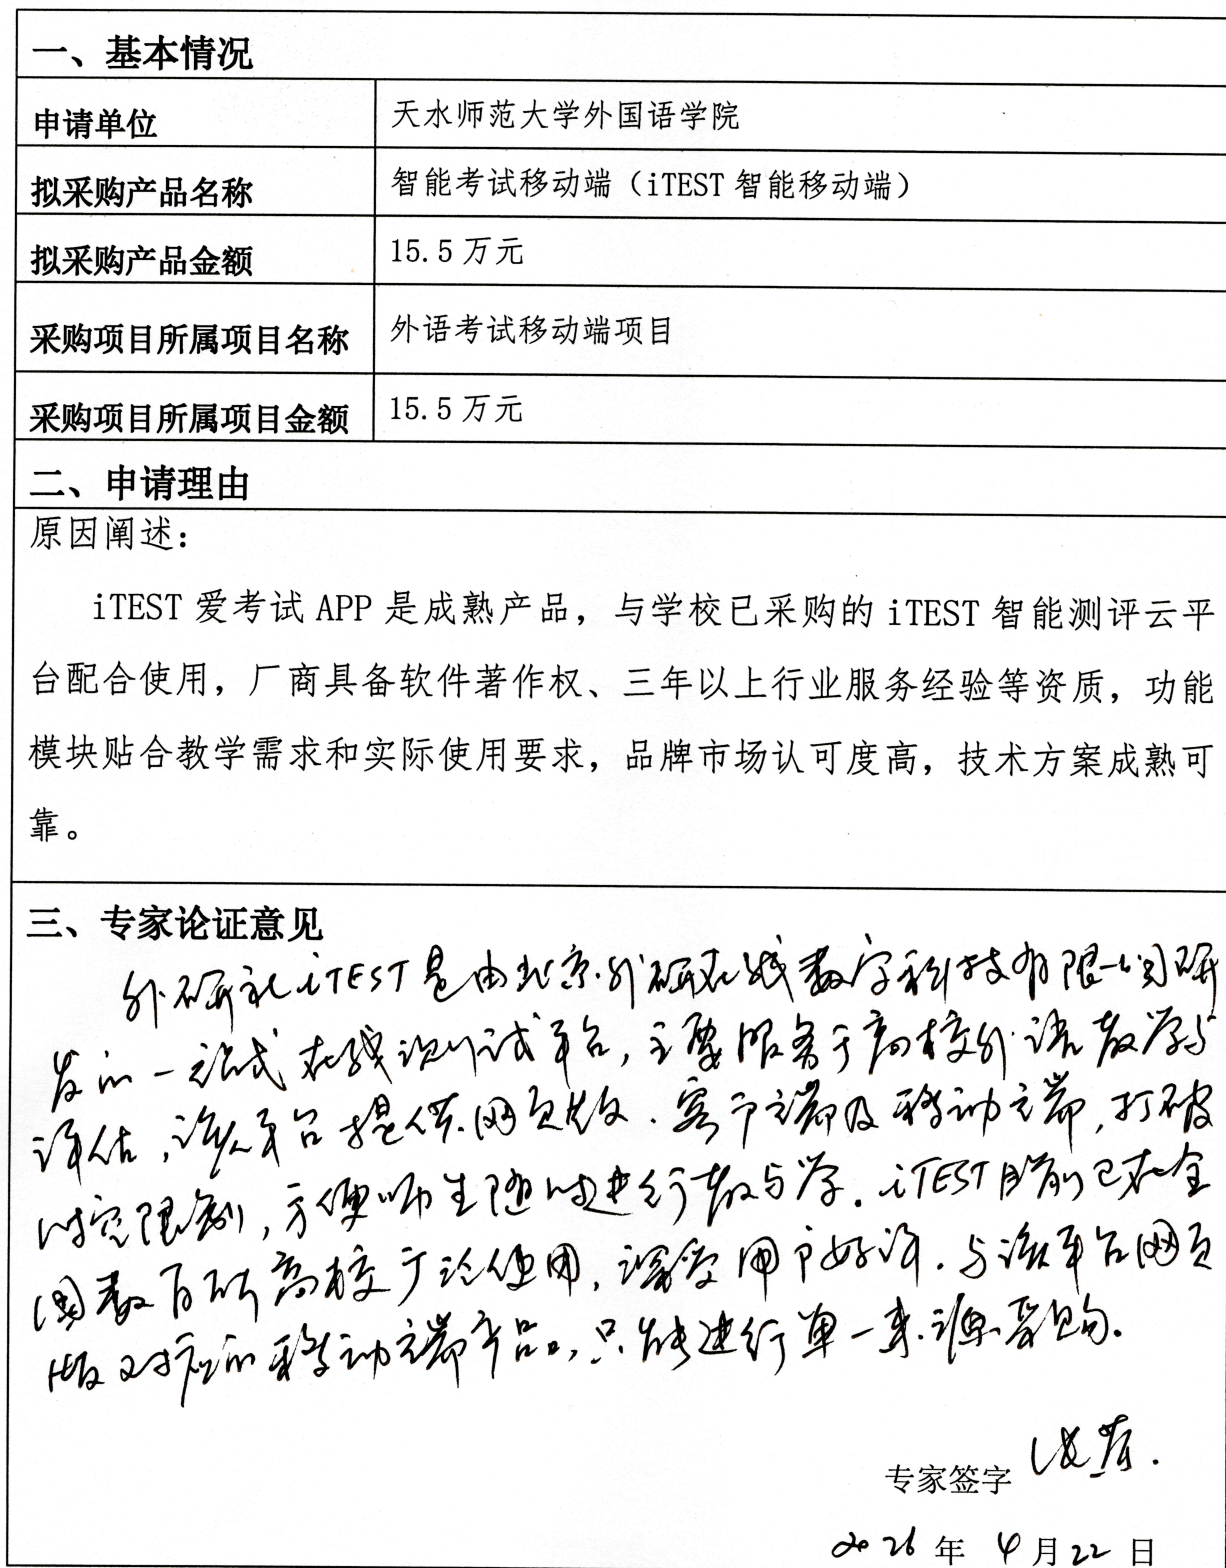 一、基本情况
申请单位 天水师范大学外国语学院
拟采购产品名称 智能考试移动端（iTEST 智能移动端）
拟采购产品金额 15.5 万元
采购项目所属项目名称 外语考试移动端项目
采购项目所属项目金额 15.5 万元
二、申请理由
原因阐述：
iTEST 爱考试 APP 是成熟产品，与学校已采购的 iTEST 智能测评云平
台配合使用，厂商具备软件著作权、三年以上行业服务经验等资质，功能
模块贴合教学需求和实际使用要求，品牌市场认可度高，技术方案成熟可
靠。
三、专家论证意见
外研社iTEST是由北京外研在线数字科技有限公司研
发的一站式在线测试平台，主要服务于高校外语教学与
评估，该平台提供网页版、客户端及移动端，打破
时空限制，方便师生随时进行教与学。iTEST目前已在全
国数百所高校广泛使用，深受用户好评。与该平台网页
版对应的移动端产品，只能进行单一来源采购。
专家签字
2026 年 4 月 22 日